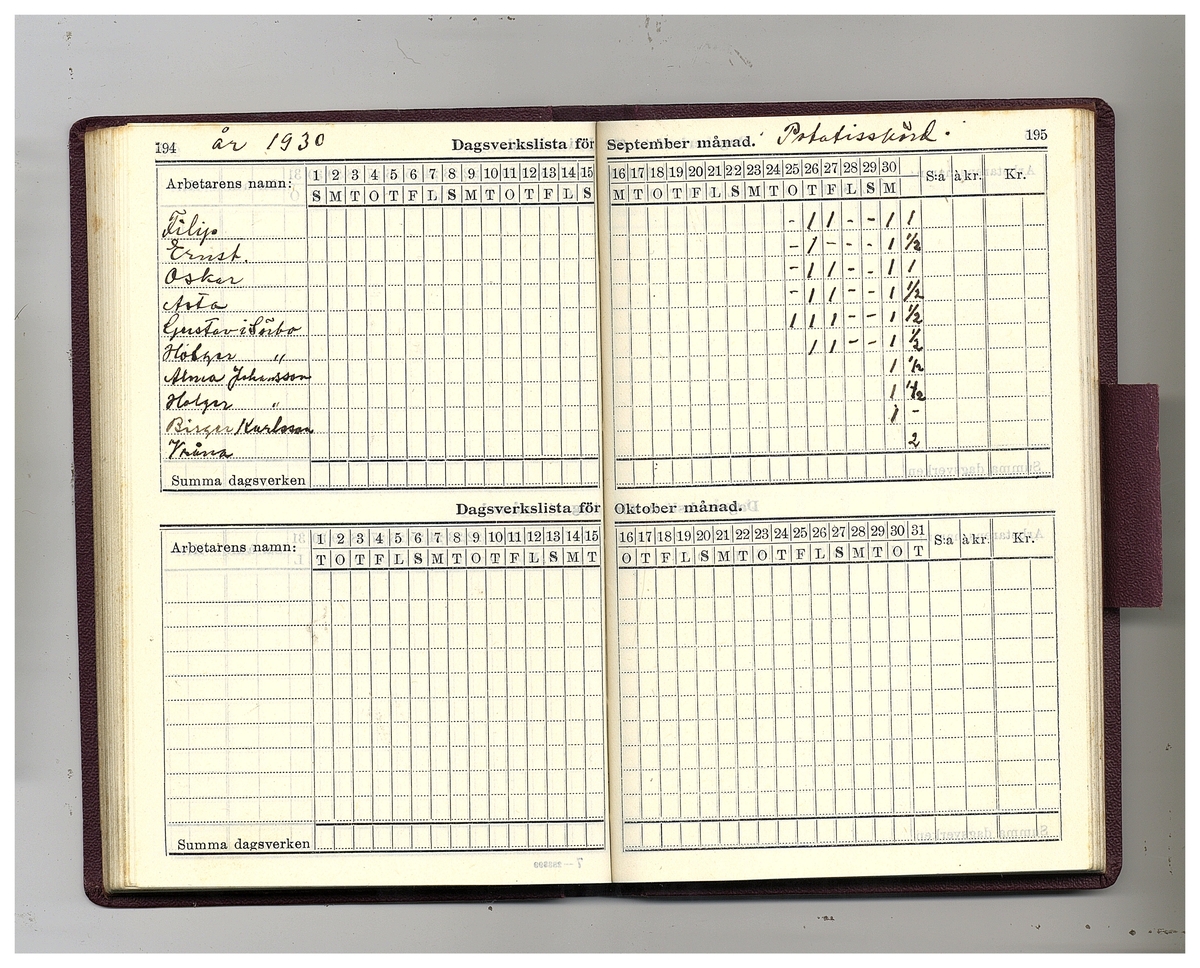 194 år 1930 Dagsverkslista för September månad. Potatisskörd. 195
Arbetarens namn: 1 2 3 4 5 6 7 8 9 10 11 12 13 14 15 16 17 18 19 20 21 22 23 24 25 26 27 28 29 30 S:a à kr. Kr.
S M T O T F L S M T O T F L S M T O T F L S M T O T F L S M
Filip - 1 1 - - 1 1
Ernst. - 1 - - - 1 1/2
Oskar - 1 1 - - 1 1
Asta - 1 1 - - 1 1/2
Gustav i Sörbo 1 1 1 - - 1 1/2
Holger " 1 1 - - 1 1/2
Alma Johansson 1 1/2
Holger " 1 1/2
Birger Karlsson 1 -
2
Summa dagsverken
Dagsverkslista för Oktober månad.
Arbetarens namn: 1 2 3 4 5 6 7 8 9 10 11 12 13 14 15 16 17 18 19 20 21 22 23 24 25 26 27 28 29 30 31 S:a à kr. Kr.
T O T F L S M T O T F L S M T O T F L S M T O T F L S M T O T
Summa dagsverken